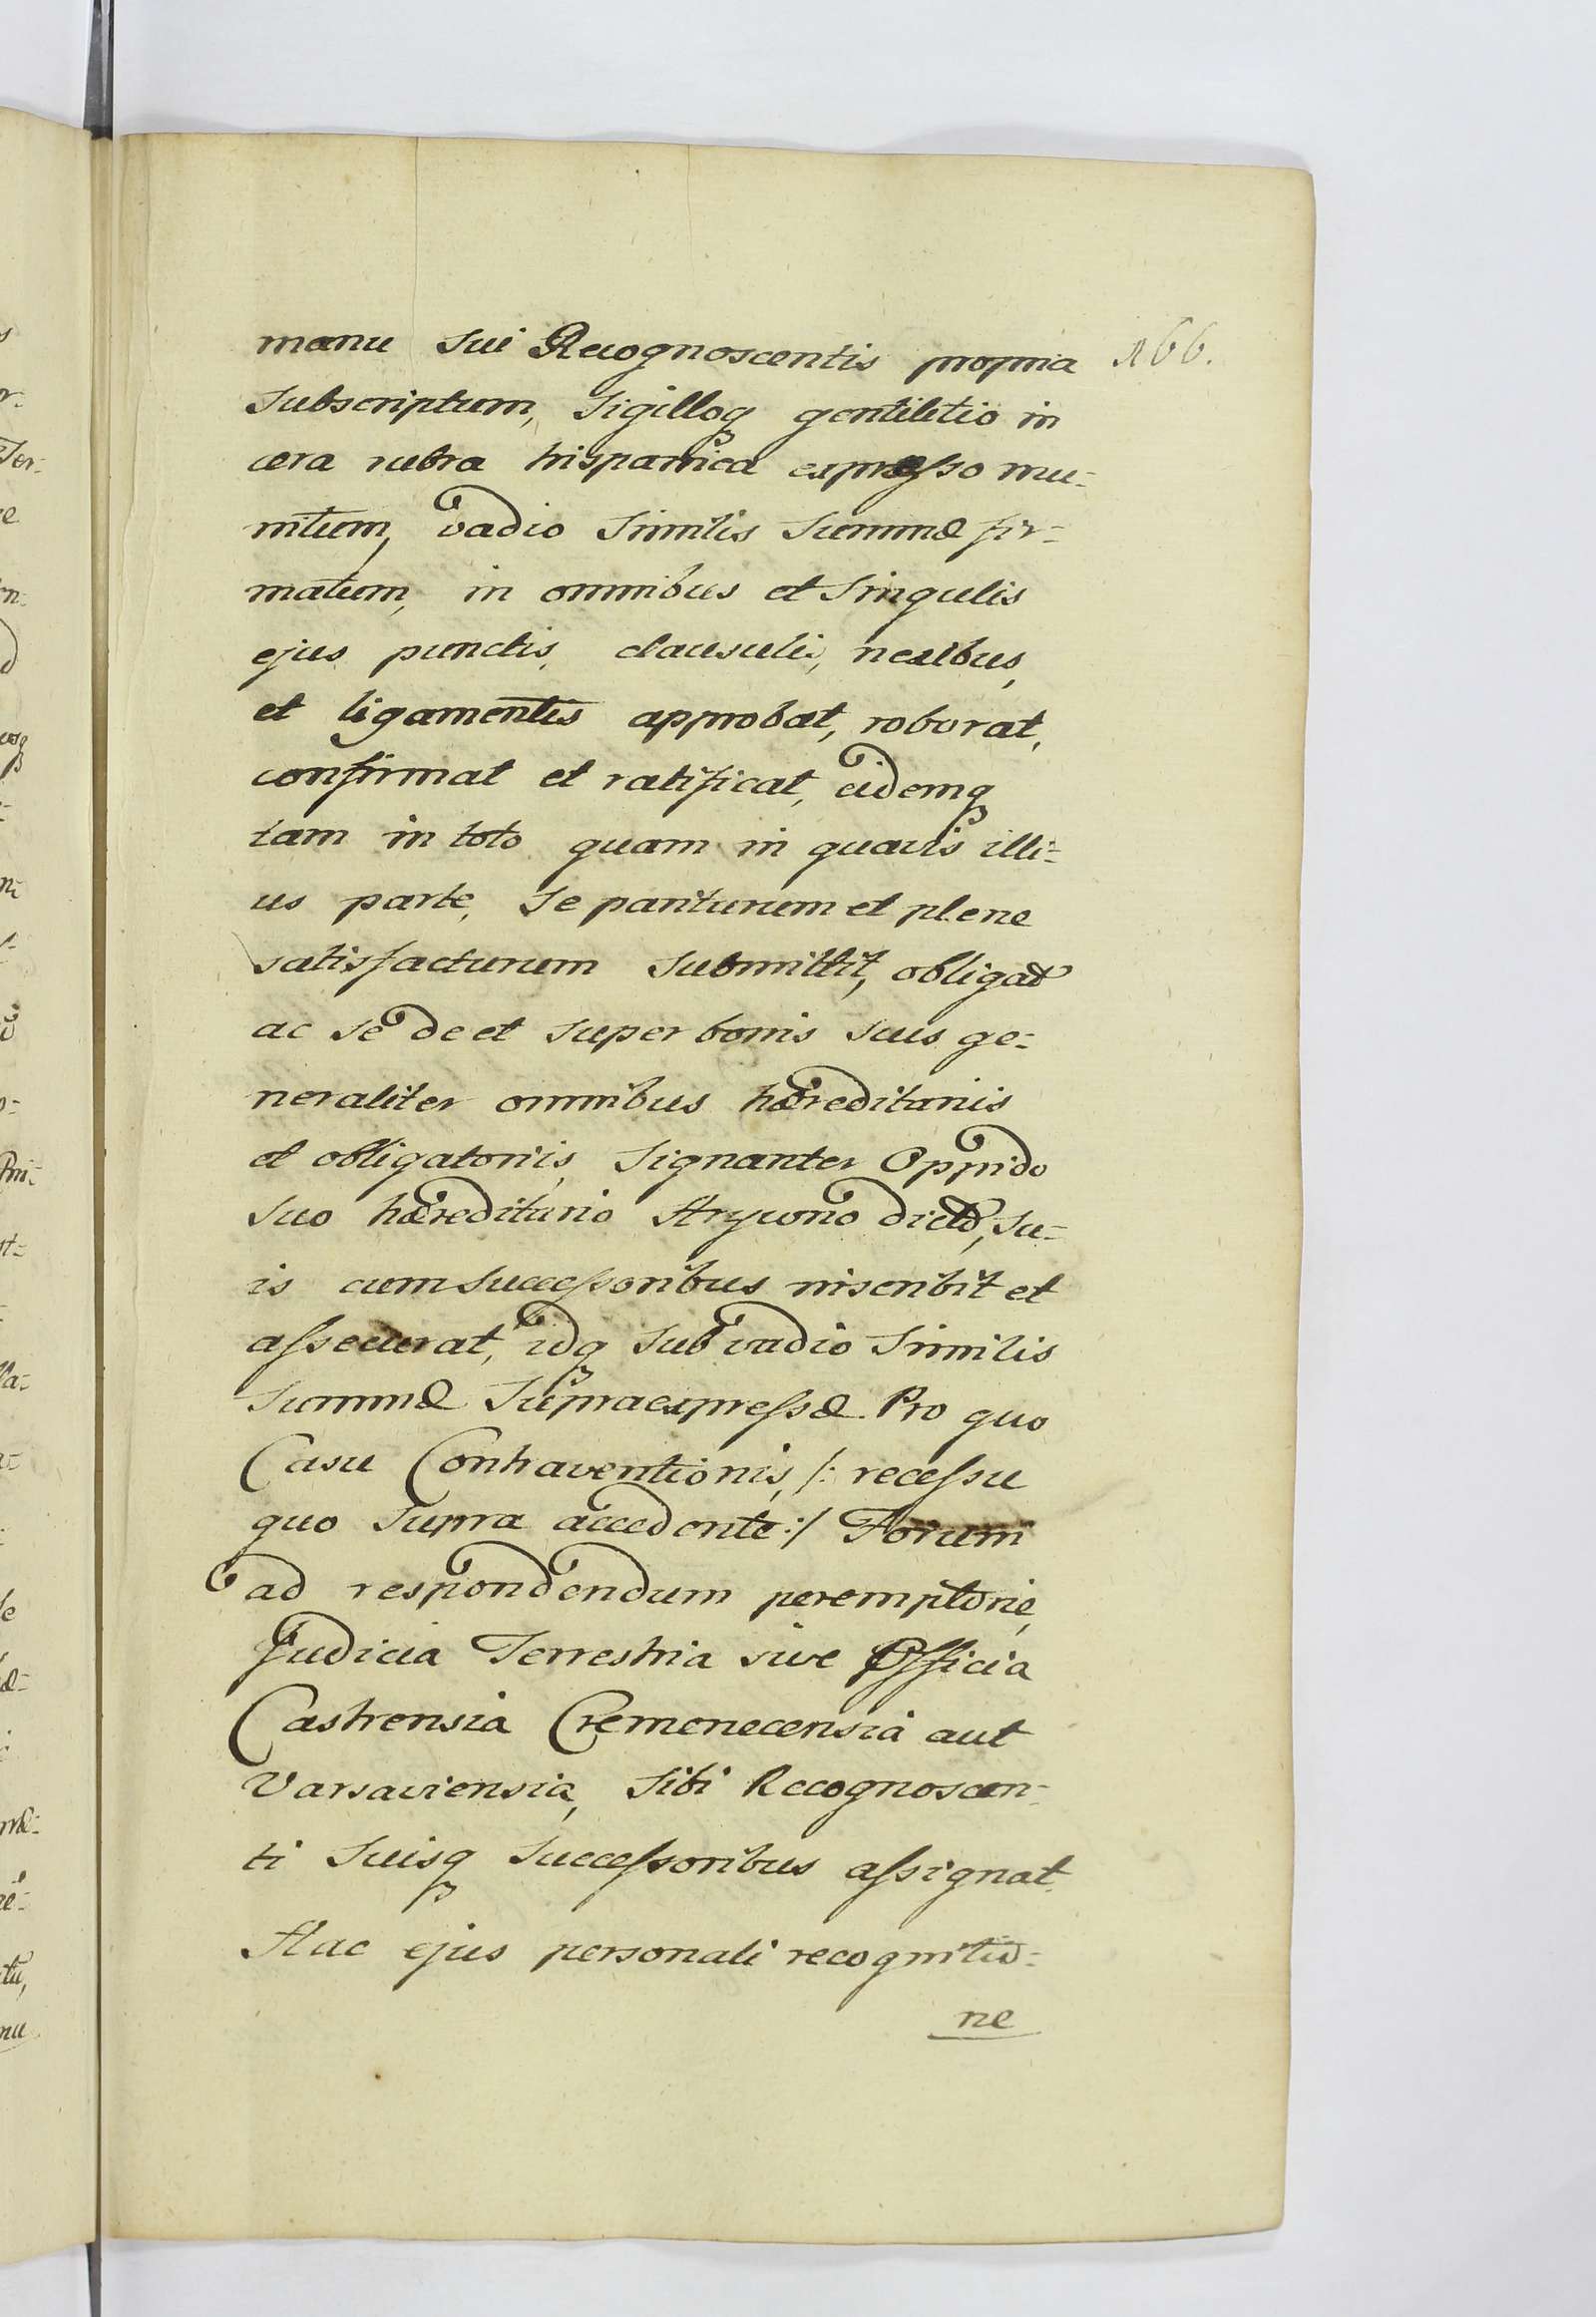 manu Sui Recognoscentis propria 166.
Subscriptum, Sigilloq gentilitio in
cera rubra hispanica expresso mu=
nitum, vadio Similis Summæ fir=
matum, in omnibus et Singulis
ejus punctis, clausulis, nexibus,
et ligamentis approbat, roborat,
confirmat et ratificat, eidemq
tam in toto quam in quavis illi=
us parte, Se pariturum et plene
satisfacturum Submittit, obligat
ac se de et super bonis suis ge=
neraliter omnibus hæreditariis
et obligatoriis, Signanter Oppido
suo hæreditario dicto, su=
is cum Successoribus inscribit et
assecurat, idq sub vadio Similis
Summæ Supraexpressæ. Pro quo
Casu Contraventionis, /: recessu
quo Supra accedente :/ Forum
ad respondendum peremptorie,
Judicia Terrestria sive Officia
Castrensia Cremenecensia aut
Varsaviensia, Sibi Recognoscen=
ti Suisq Successoribus assignat.
Hac ejus personali recognitio=
ne